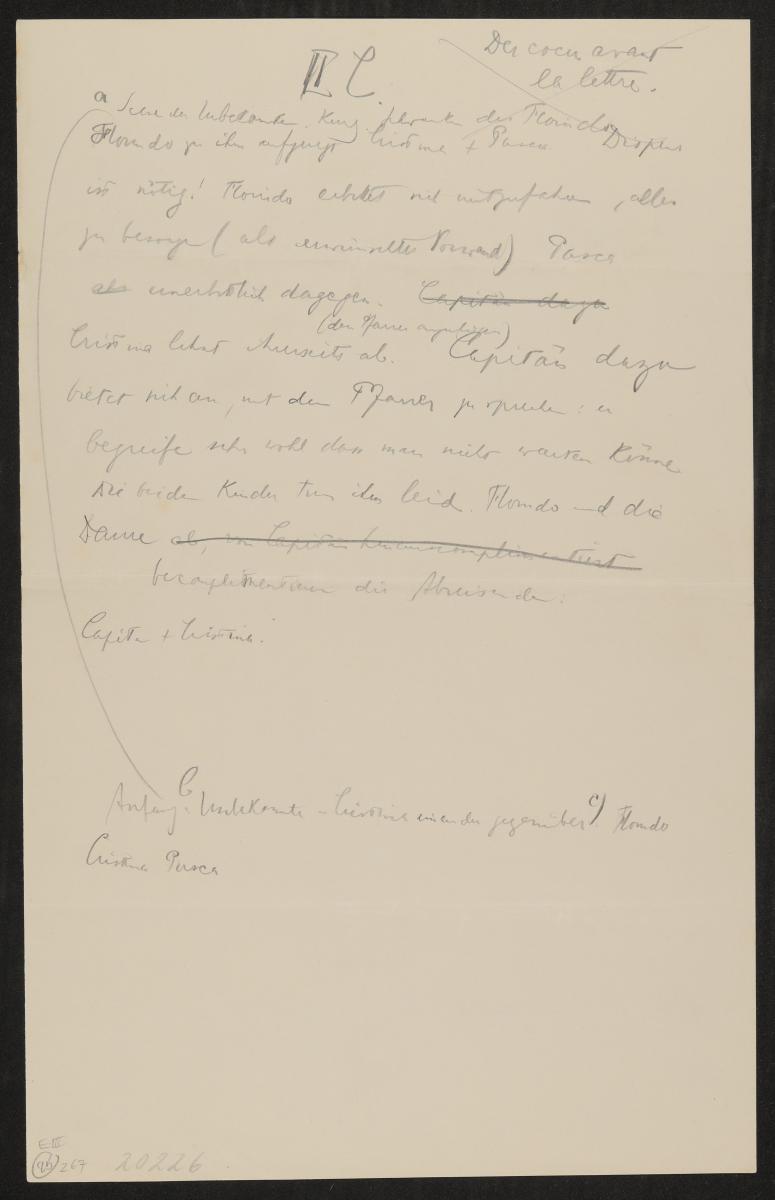 II C.
Des cocu avant
la lettre.
a Scene der Unbekannten. Florindo Disput
Florindo zu ihm Cristina + Pasca
ist nötig! Florindo erbietet sich mitzufahren, alles
zu besorgen (als Vorwand) Pasca
als unerbittlich dagegen. Capitän dazu
(den Pfarrer)
Cristina lehnt ihrerseits ab. Capitän dazu
bietet sich an, mit dem Pfarrer zu sprechen: er
begreife sehr wohl dass man nicht warten könne
Die beiden Kinder tun ihm leid. Florindo und die
Dame ab, vom Capitän
becomplimentieren die Abreisenden:
Capitän + Cristina.
Anfang b Unbekannte – Cristina einander gegenüber c) Florindo
Cristina Pasca
E III
267 20226